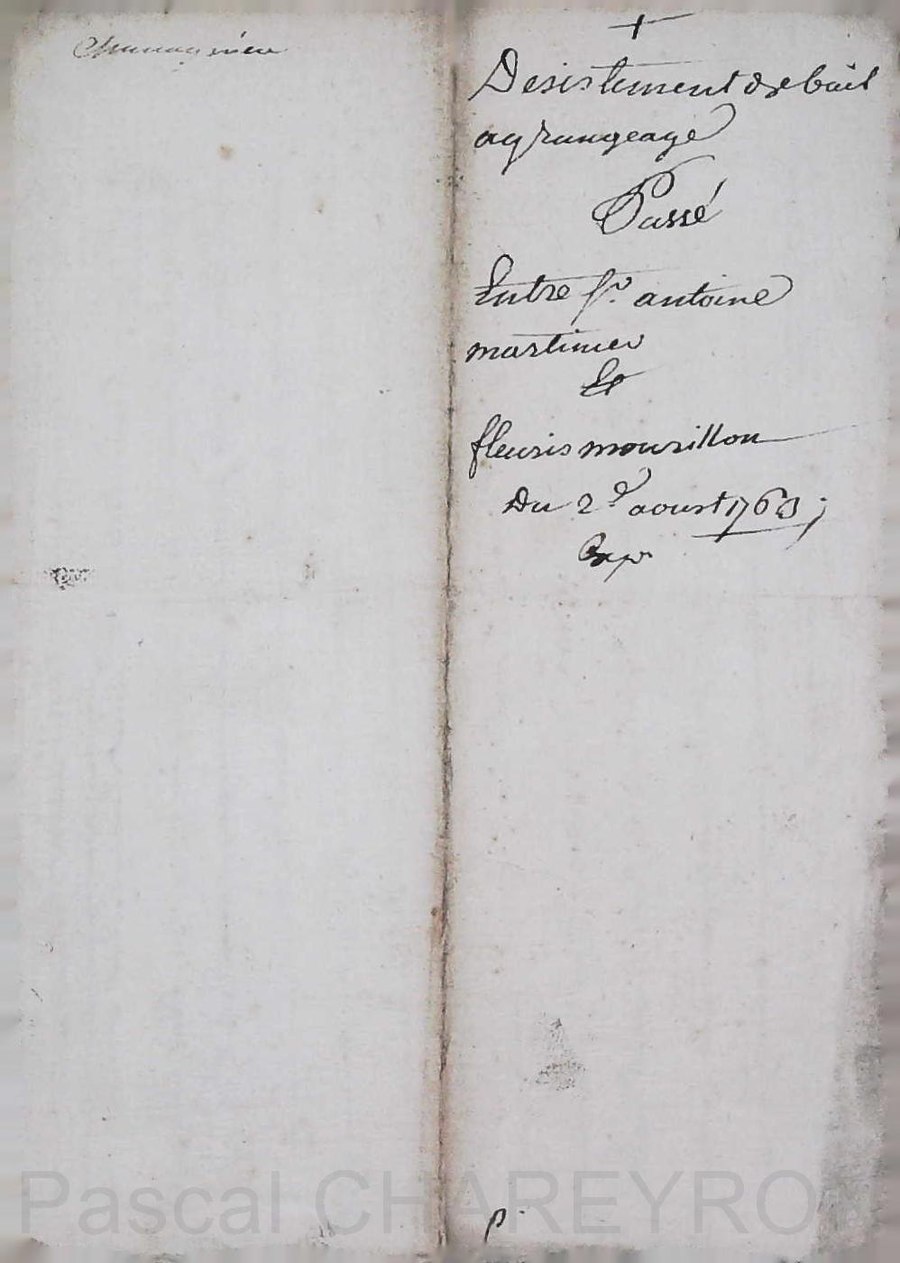 +
Desistement de bail
agrangeage
Passé
Entre Sr. antoine
martinier
Et
fleuris mourillon
Du 2e. aoust 1763;
Exp
p.
Pascal CHAREYRON